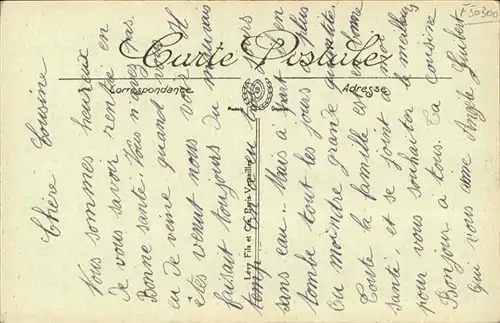 F 50300
Carte Postale
Correspondance
Adresse
Lévy Fils et Cie, Paris-Versailles
Chère Cousine
Vous sommes heureux
de vous savoir rentré en
Bonne santé. Vous n'avez pas
eu de veine quand vous
êtes venut nous voir. Il
faisait toujours du mauvais
temp. On a eu jours
sans eau. Mais à part en
tombe tout les jours plus
ou moindre grande quantité
Toute la famille est en bonne
santé, et se joint à moi
pour vous souhaiter la meilleur
Bonjour à tous. Ta cousine
qui vous aime Angèle Guibert